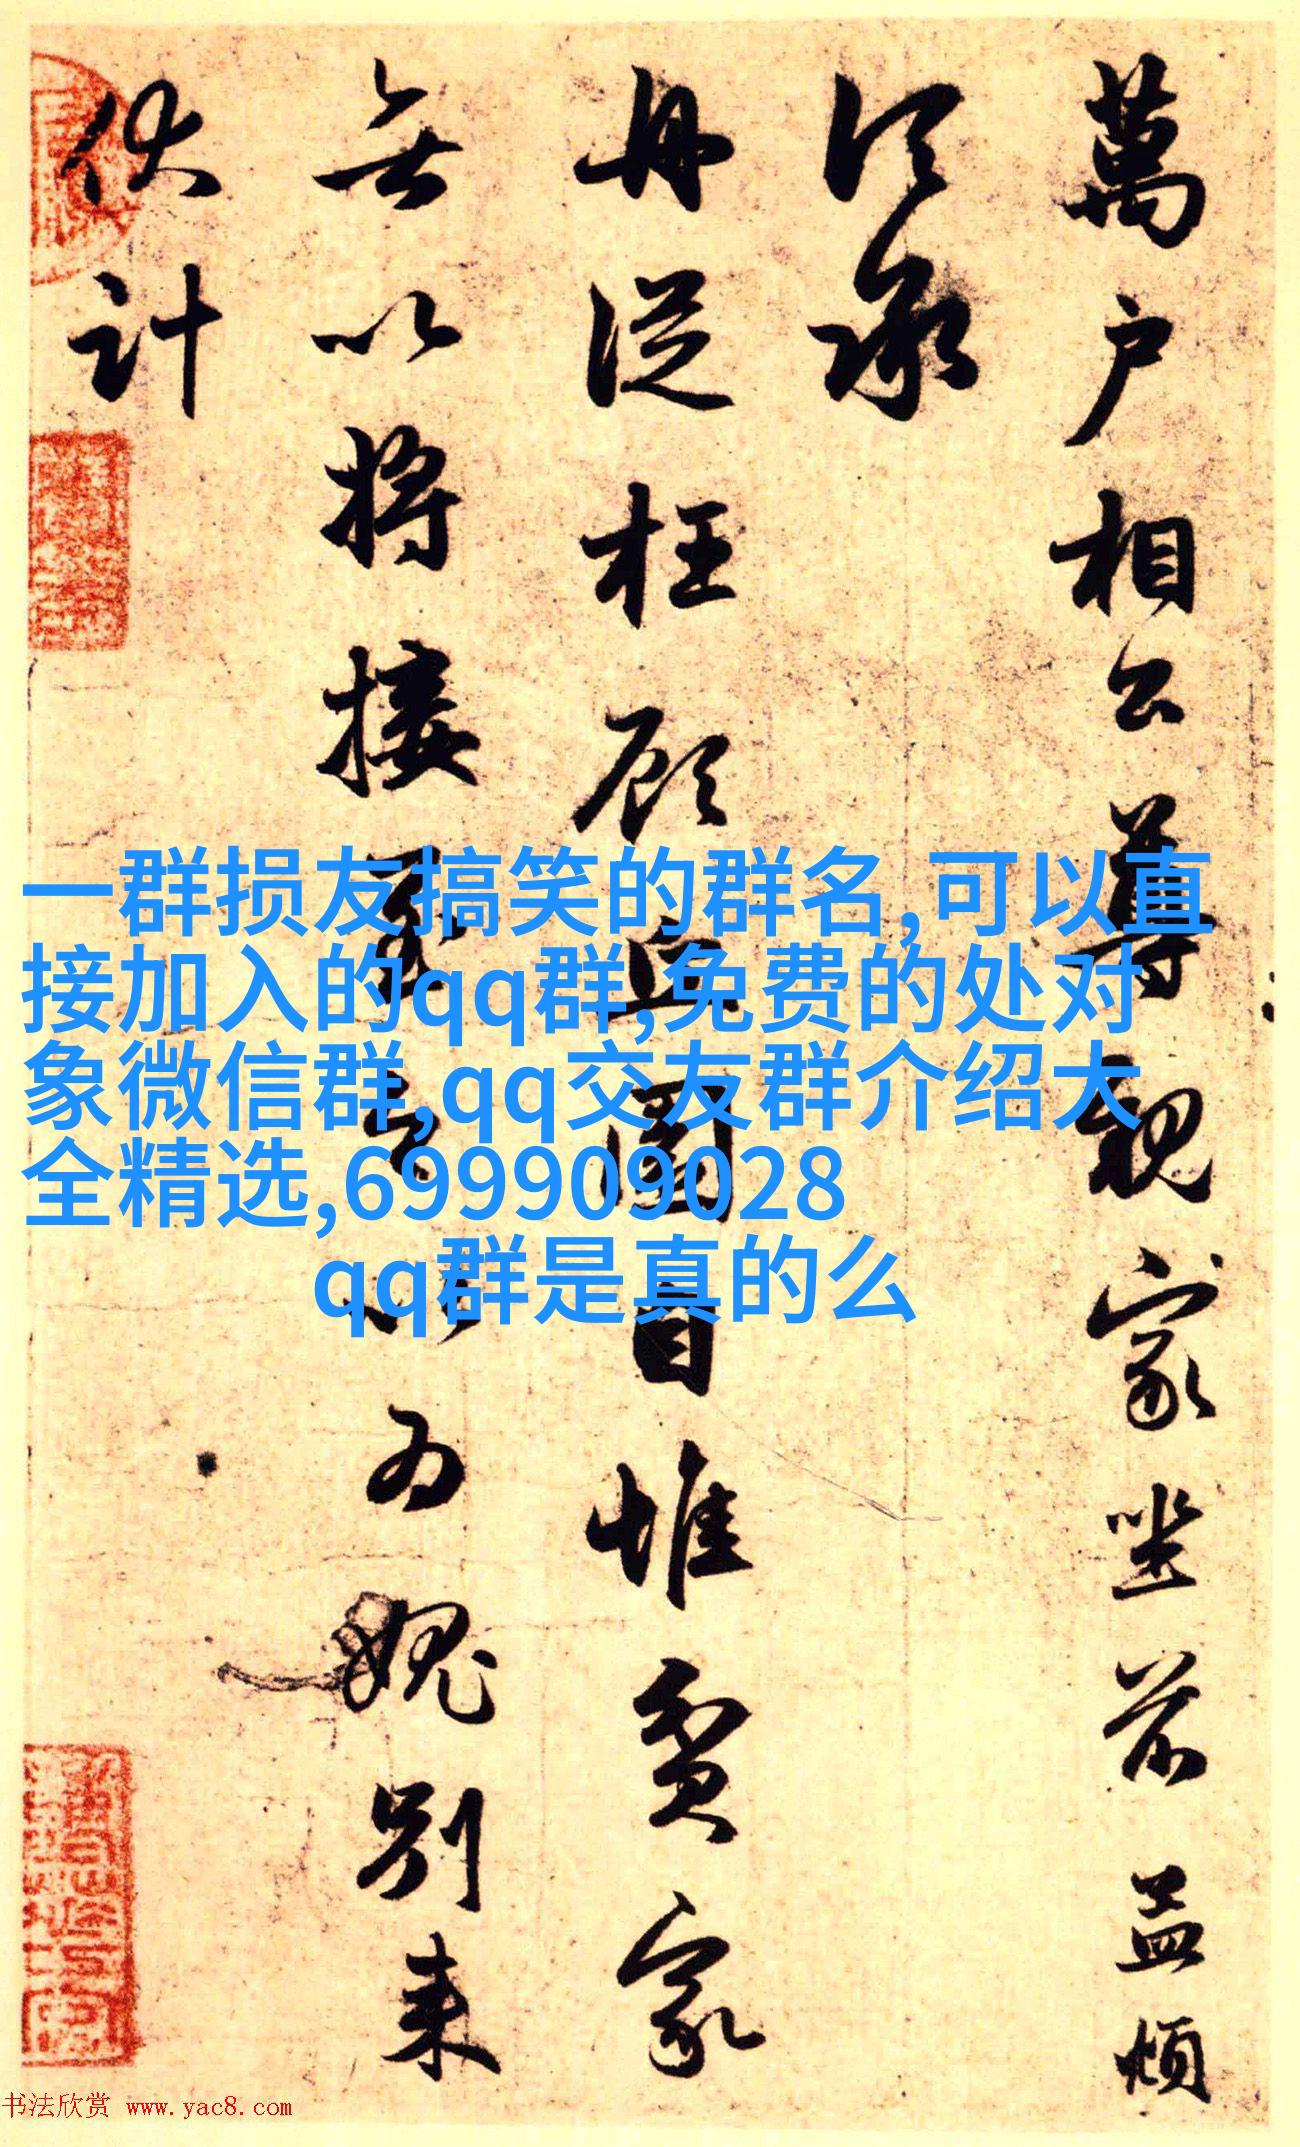 萬户相公尊親家坐前孟頫
頃承
舟從枉顧園自惟貧家
無以將接以为媿别来
伏計
一群损友搞笑的群名,可以直
接加入的qq群,免费的处对
象微信群,qq交友群介绍大
全精选,699909028
qq群是真的么
书法欣赏 www.yac8.com